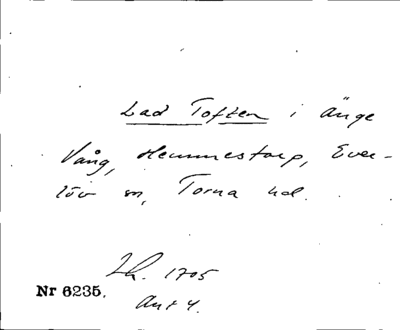 Lad Toften i änge
Vång, Hemmestorp, Ever-
löv sn, Torna hd.
Lh. 1705
Nr 6235.
Ant 4.